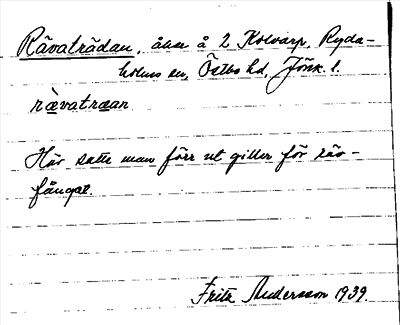 Rävaträdan, åker å 2 Kolvarp, Ryda-
holms sn, Östbo hd, Jönk. l.
rævatraan
Här satte man förr ut giller för räv-
fångst.
Fritz Andersson 1939.